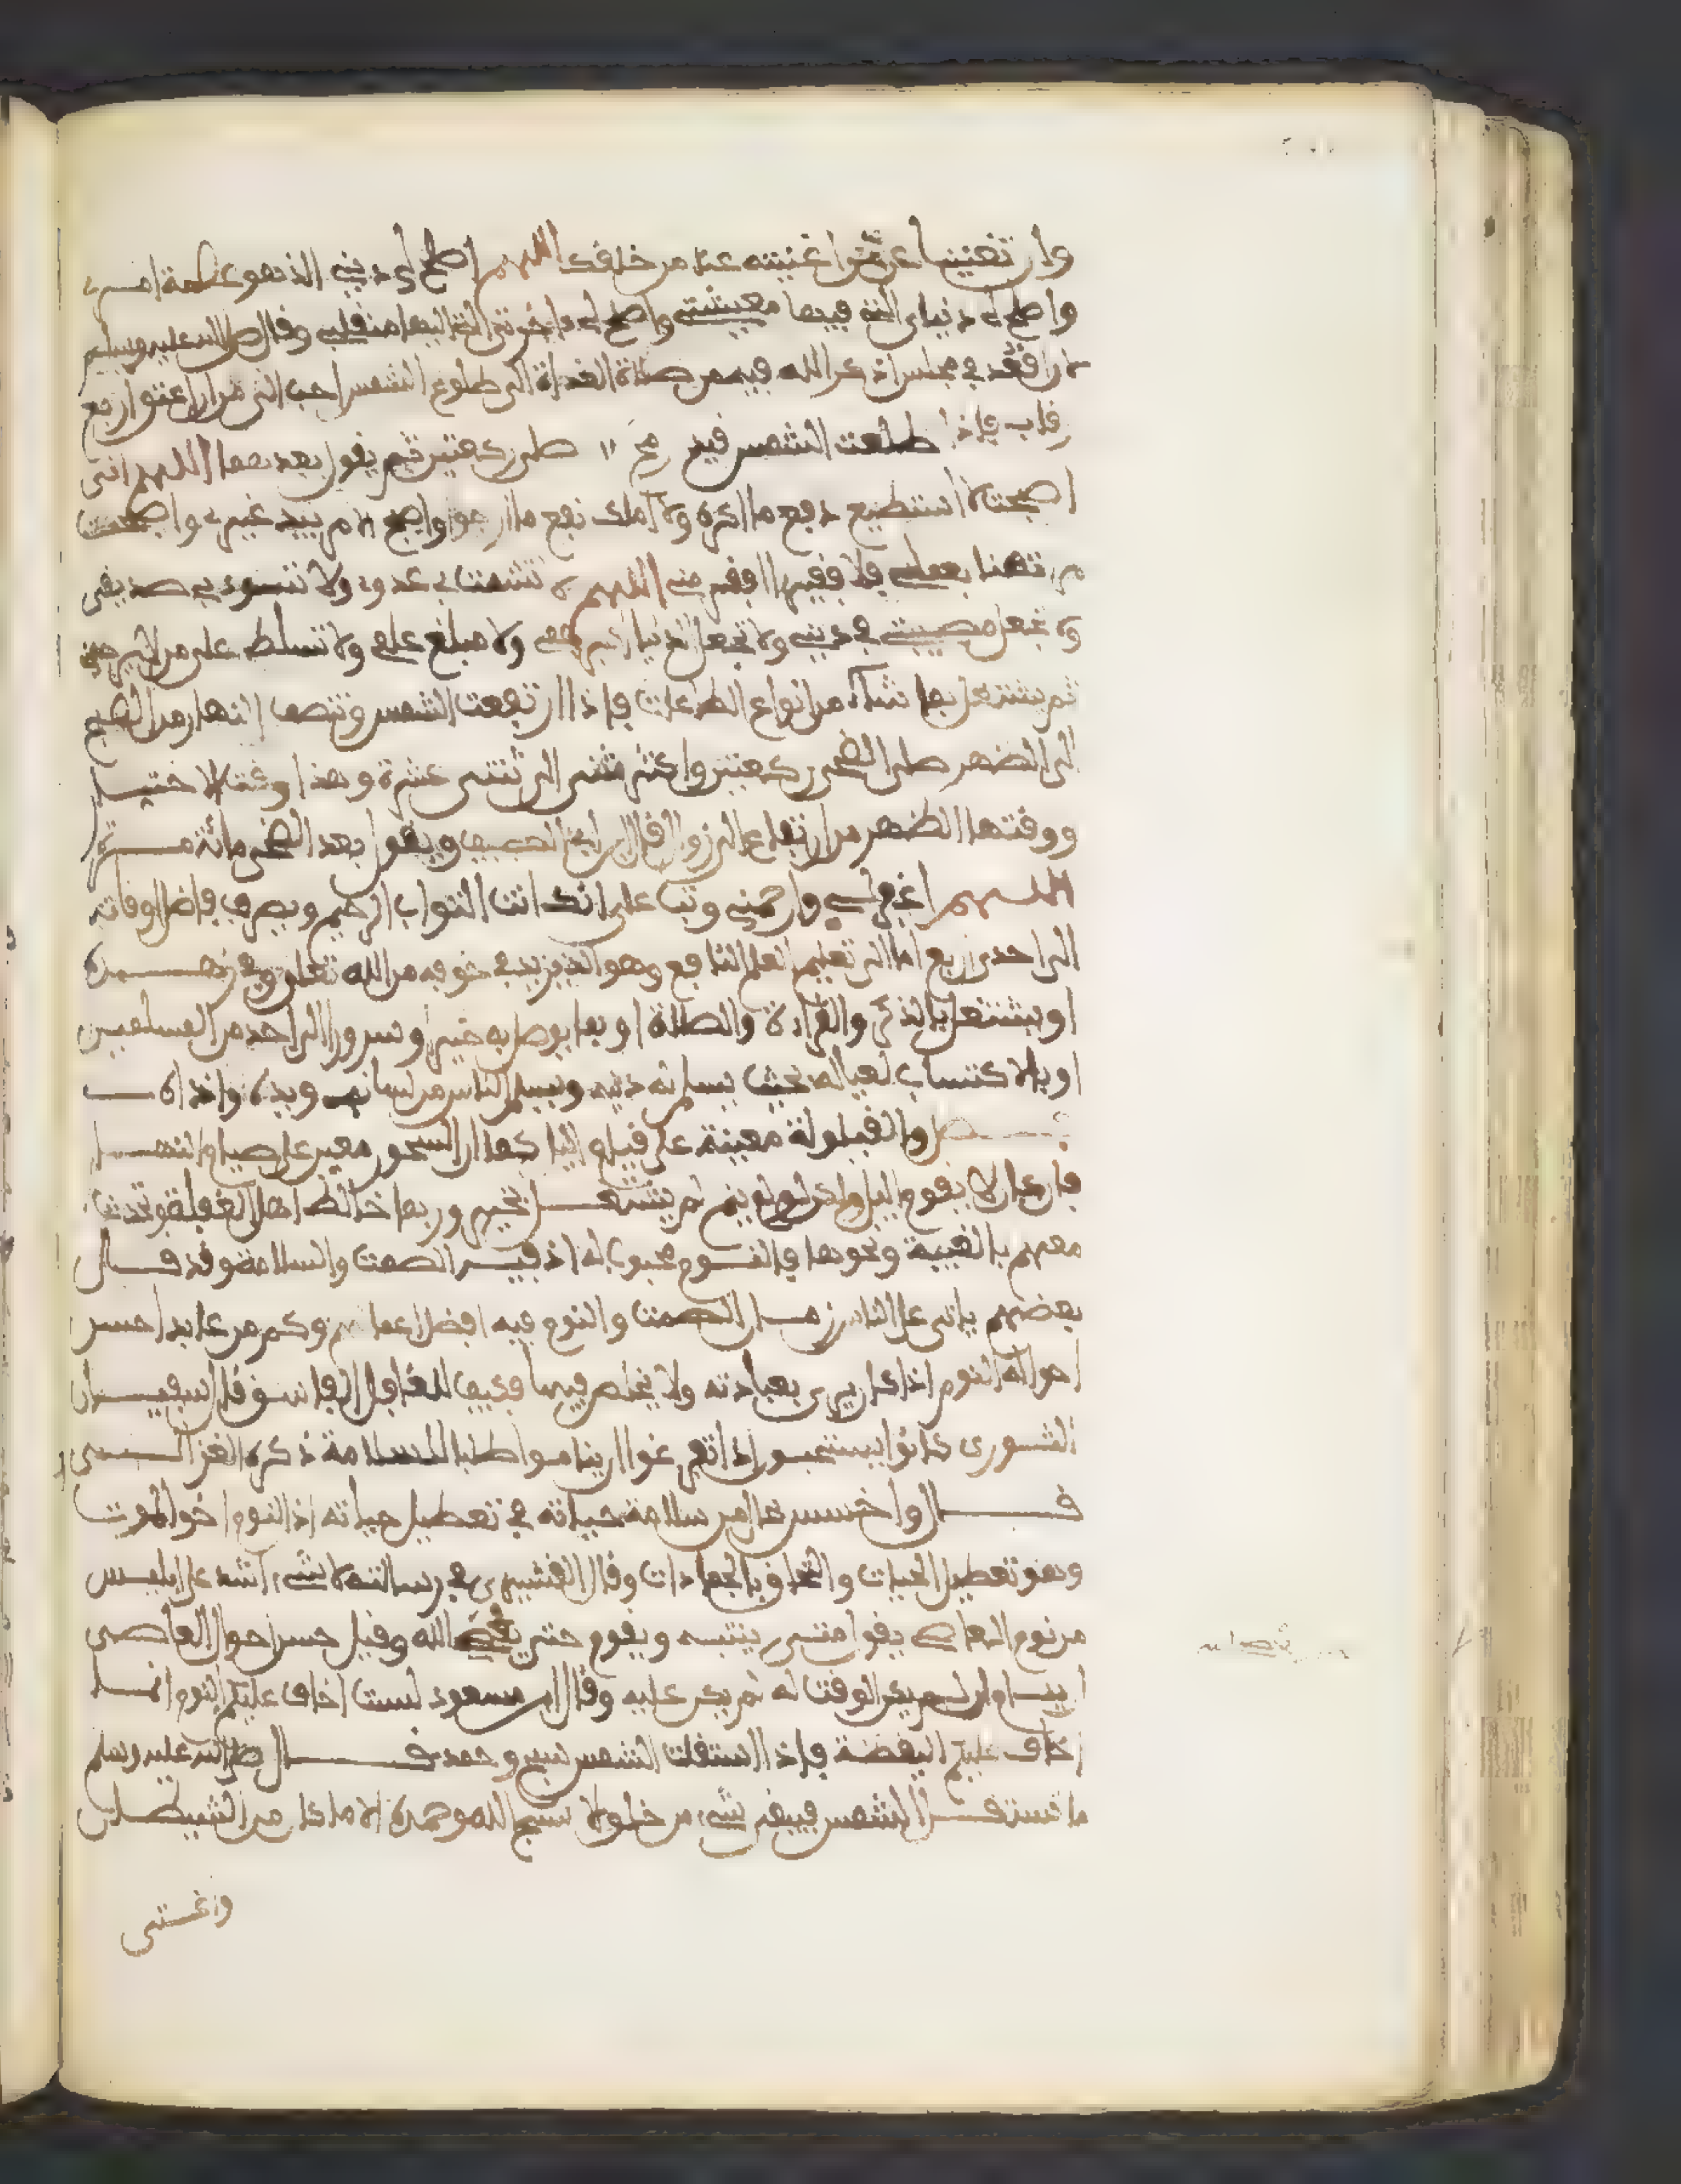 وان تغنينا عمن اغنيته عنا من خلقك اللهم اصلح لي ديني الذي هو عصمة امري
واصلح لي دنياي التي فيها معيشتي واصلح لي ءاخرتي التي اليها منقلبي وقال صلى الله عليه وسلم
لان اقعد في مجلس اذكر الله فيه من صلاة الغداة الى طلوع الشمس احب الي من ان اعتق اربع
رقاب فاذا طلعت الشمس قيد رمح صلى ركعتين ثم يقول بعدهما اللهم اني
اصبحت لا استطيع دفع ما اكره ولا املك نفع ما ارجو واصبح الامر بيد غيري واصبحت
مرتهنا بعملي فلا فقير افقر مني اللهم لا تشمت بي عدوي ولا تسوء بي صديقي
ولا تجعل مصيبتي في ديني ولا تجعل الدنيا اكبر همي ولا مبلغ علمي ولا تسلط علي من لا يرحمني
ثم يشتغل بما شاء من انواع الطاعات فاذا ارتفعت الشمس وتنصف النهار من الصبح
الى الظهر صلى الضحى ركعتين واكثر شيء الى ثنتى عشرة وهذا وقت الاختيار
ووقتها الظهر من ارتفاع الى زوال قال ابن ابي الصيف ويقول بعد الضحى مائة مرة
اللهم اغفر لي وارحمني وتب علي انك انت التواب الرحيم ويصرف فاضل اوقاته
الى احدى اربع اما الى تعليم العلم النافع وهو الذي يزيد في خوفه من الله تعلى وفي زهده
او يشتغل بالذكر والقراءة والصلاة او بما يوصل به خيرا وسرورا الى احد من المسلمين
او بالاكتساب لعياله بحيث يسلم له دينه ويسلم الناس من لسانه ويده واذا كان
والقيلولة معينة على قيام الليل كما ان السحور معين على صيام النهار
فان كان لا يقوم اليل ولكن لو لم ينم لم يشتغل بخير وربما خالط اهل الغفلة وتحدث
معهم بالغيبة ونحوها فالنوم محبوب له اذ فيه الصمت والسلامة وقد قال
بعضهم ياتي على الناس زمان الصمت والنوم فيه افضل اعمالهم وكم من عابد احسن
احواله النوم اذا كان يرى بعبادته ولا يخلص فيها فكيف للغافل الفاسق قال سفيان
الثوري كانوا يستحبون اذا تفرغوا ان يناموا طلبا للسلامة ذكره الغزالي
قال واخسس بحال من سلامة حياته في تعطيل حياته اذ النوم اخو الموت
وهو تعطيل الحيات والتحاق بالجمادات وقال القشيري في رسالته لا شيء اشد على ابليس
من نوم العاصي يقول متى ينتبه ويقوم حتى يعصي الله وقيل حسن احوال العاصي
ان ينام ان لم يكن الوقت له لم يكن عليه وقال ابن مسعود لست اخاف عليكم النوم انما
اخاف عليكم اليقضة فاذا استقلت الشمس سبح وحمد قال صلى الله عليه وسلم
ما تستقل الشمس فيبقى شيء من خلق الا سبح الله وحمده الا ما كان من الشيطان
واغتنى